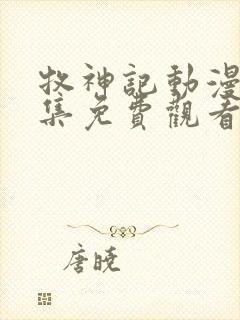 牧神記動漫
集免費觀看
唐曉